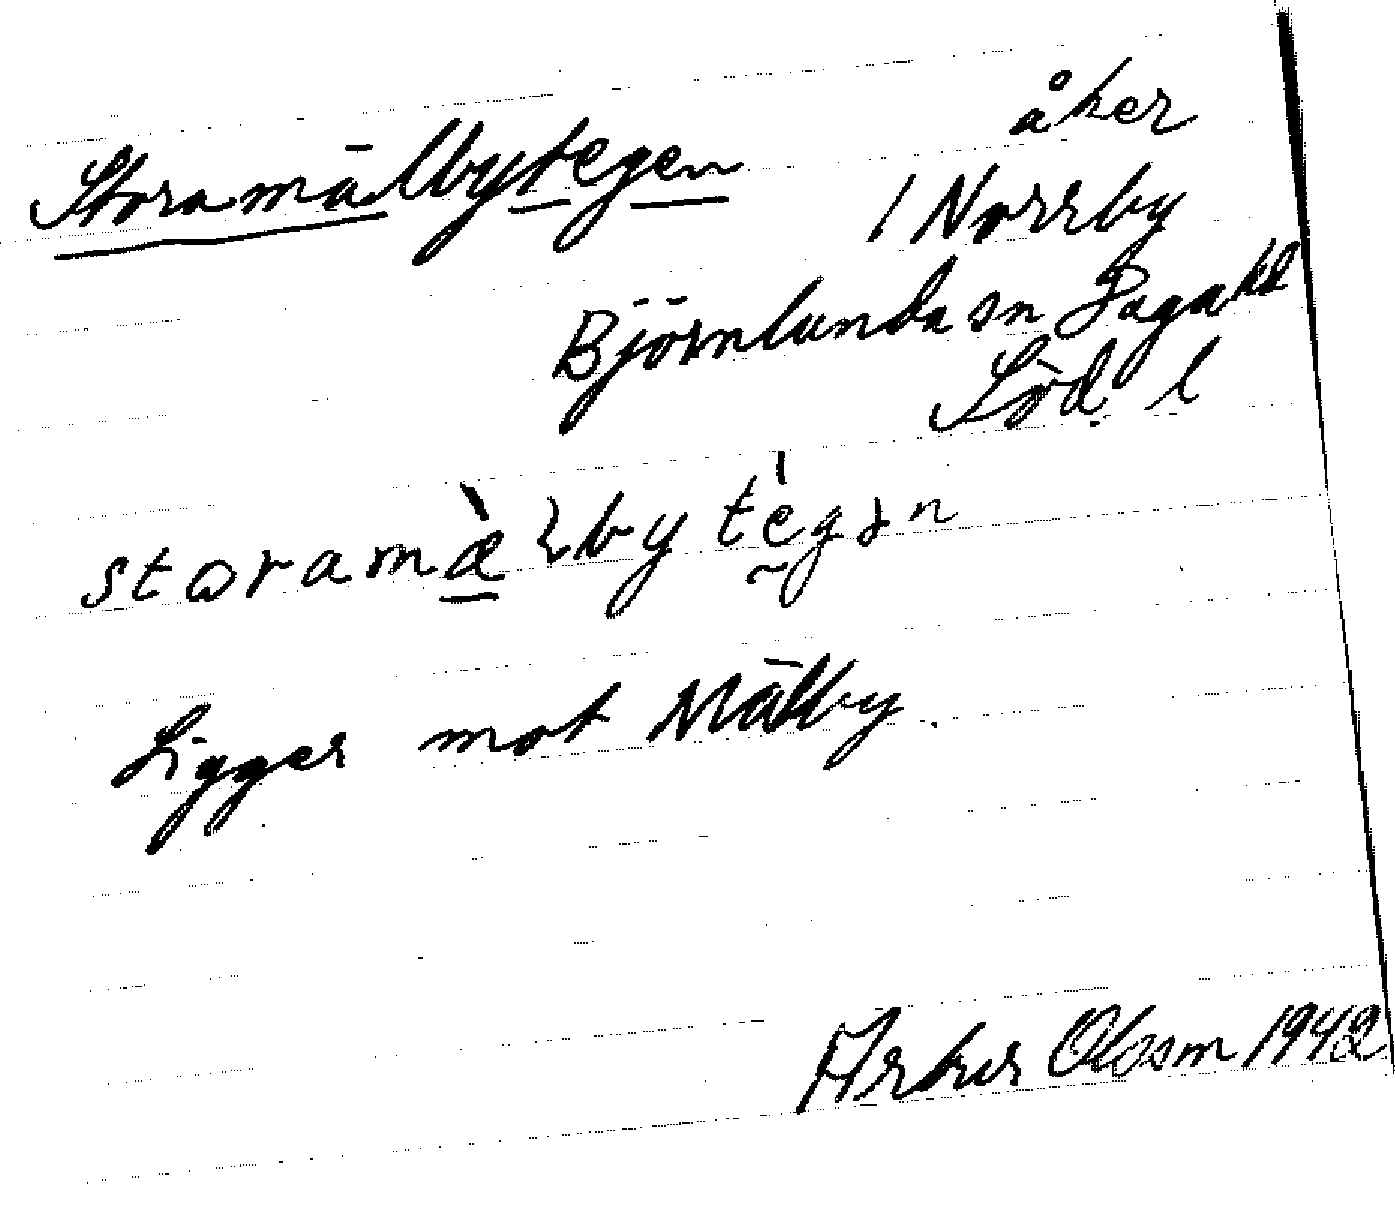 åker
Storamälbytegen
1 Norrby
Björnlunda sn Daga hd
Söd. l
storamæ̀lbytegən
Ligger mot Mälby.
Arthur Olsson 1942